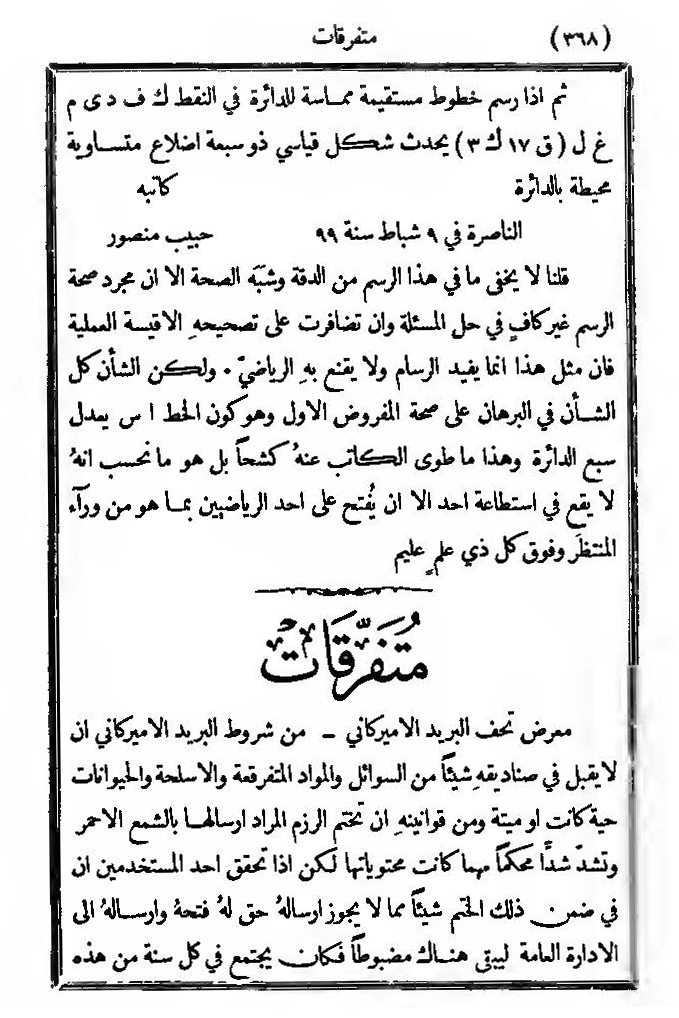 (٣٦٨) متفرقات
ثم اذا رسم خطوط مستقيمة مماسة للدائرة في النقط ك ف د ى م
غ ل (ق ١٧ ك ٣) يحدث شكل قياسي ذو سبعة اضلاع متساوية
محيطة بالدائرة كاتبه
الناصرة في ٩ شباط سنة ٩٩ حبيب منصور
قلنا لا يخفى ما في هذا الرسم من الدقة وشبَه الصحة الا ان مجرد صحة
الرسم غير كافٍ في حل المسئلة وان تضافرت على تصحيحهِ الاقيسة العملية
فان مثل هذا انما يفيد الرسام ولا يقنع بهِ الرياضيّ ٠ ولكن الشأن كل
الشأن في البرهان على صحة المفروض الاول وهو كون الخط ا س يعدل
سبع الدائرة وهذا ما طوى الكاتب عنهُ كشحاً بل هو ما نحسب انهُ
لا يقع في استطاعة احد الا ان يُفتح على احد الرياضيين بما هو من ورآء
المنتظَر وفوق كل ذي علمٍ عليم
مُتَفَرِّقَات
معرض تحف البريد الاميركاني – من شروط البريد الاميركاني ان
لا يقبل في صناديقهِ شيئاً من السوائل والمواد المتفرقعة والاسلحة والحيوانات
حية كانت او ميتة ومن قوانينهِ ان تختم الرزم المراد ارسالها بالشمع الاحمر
وتشدّ شدًّا محكماً مهما كانت محتوياتها لكن اذا تحقق احد المستخدمين ان
في ضمن ذلك الختم شيئاً مما لا يجوز ارسالهُ حق لهُ فتحهُ وارسالهُ الى
الادارة العامة ليبقى هناك مضبوطاً فكان يجتمع في كل سنة من هذه